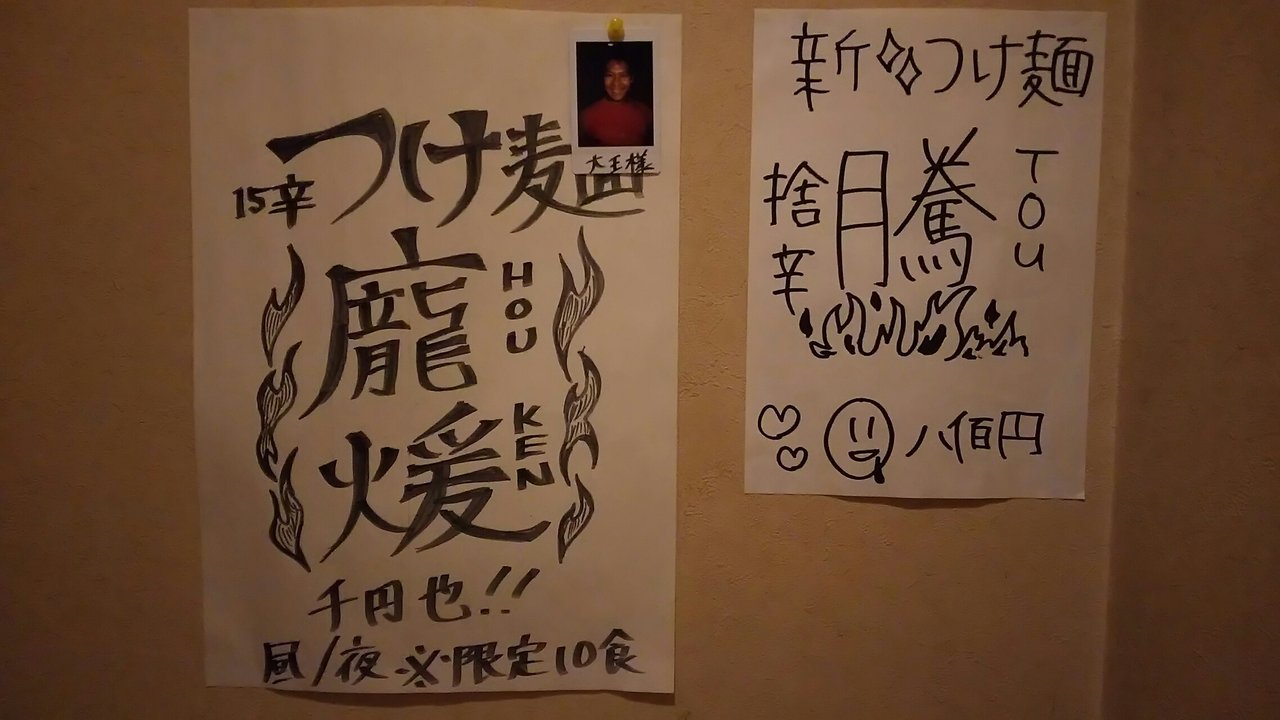 大王様
つけ麺
15辛
龐
HOU
煖
KEN
千円也!!
昼/夜 ※限定10食
新つけ麺
捨辛
騰
TOU
八佰円